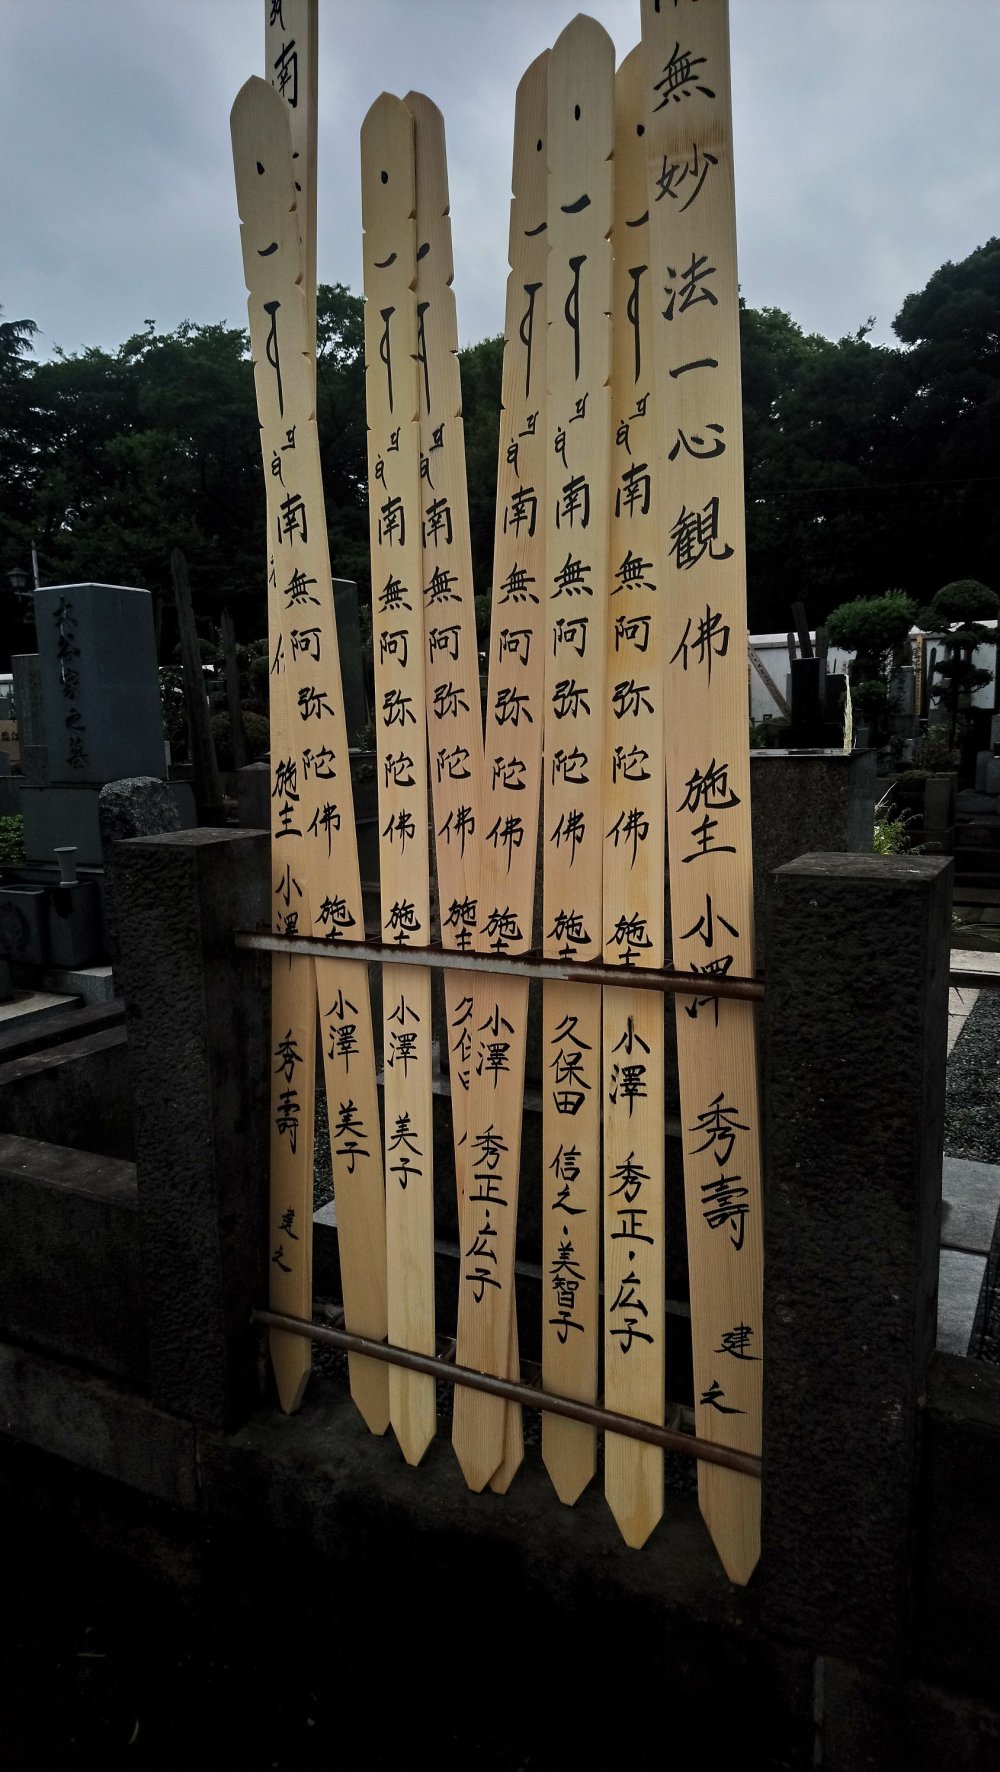 南
施主 小澤 秀壽 建之
南無阿弥陀佛 施主 小澤 美子
南無阿弥陀佛 施主 小澤 美子
南無阿弥陀佛 施主 久保田
南無阿弥陀佛 施主 小澤 秀正・広子
南無阿弥陀佛 施主 久保田 信之・美智子
南無阿弥陀佛 施主 小澤 秀正・広子
無妙法一心観佛 施主 小澤 秀壽 建之
家之墓